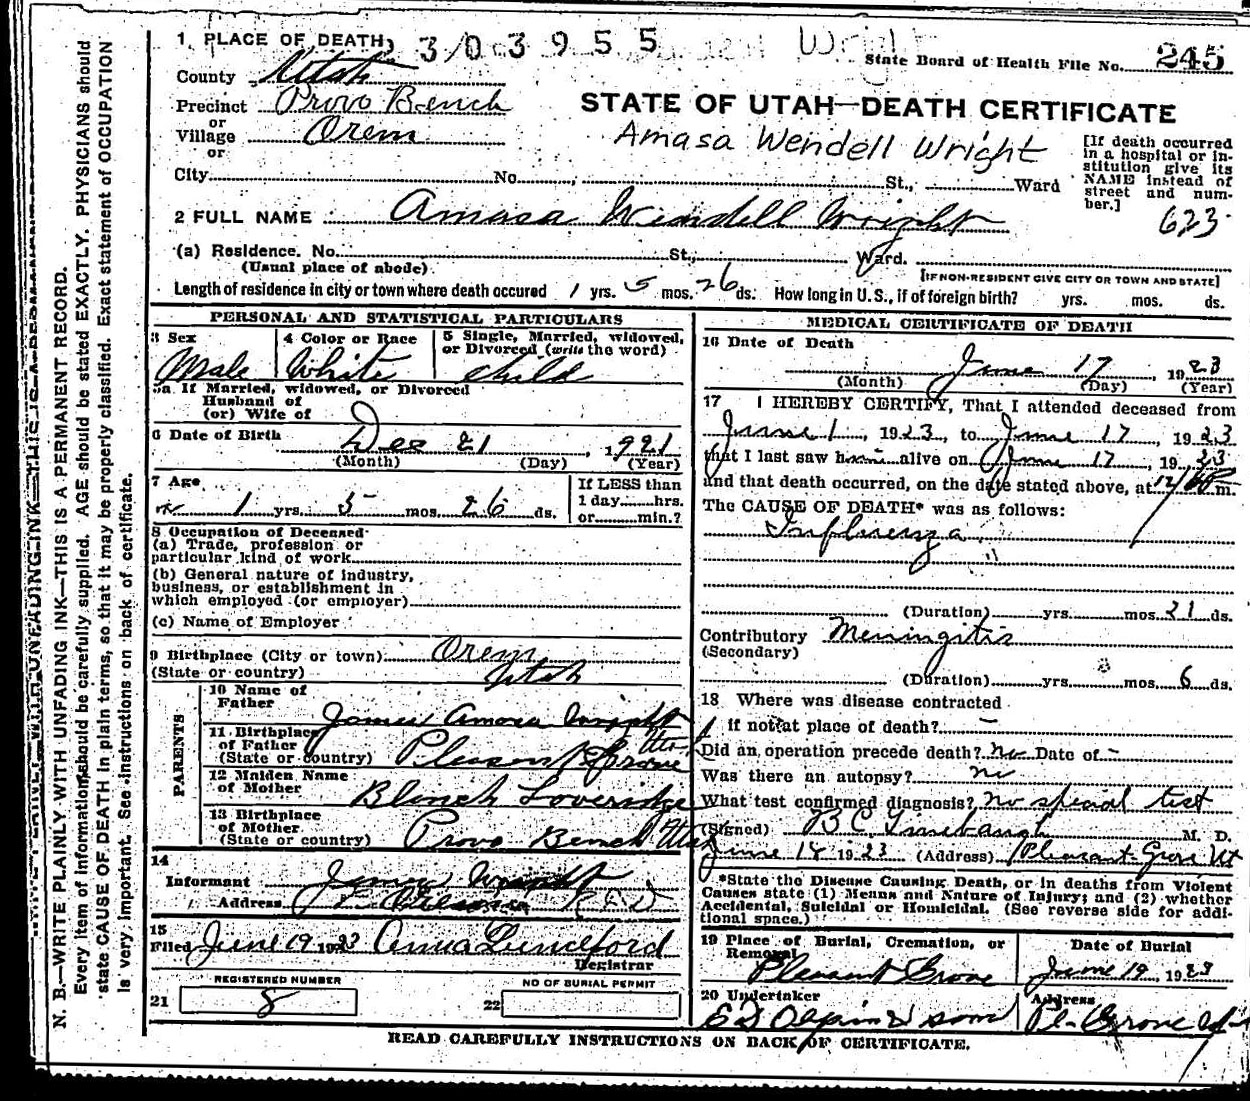 1 PLACE OF DEATH, 303955 Wright
State Board of Health File No. 245
County Utah
Precinct Provo Bench
or
Village Orem
or
City No. St., Ward
STATE OF UTAH—DEATH CERTIFICATE
Amasa Wendell Wright
[If death occurred
in a hospital or in-
stitution give its
NAME instead of
street and num-
ber.]
623
2 FULL NAME Amasa Wendell Wright
(a) Residence. No. St., Ward.
(Usual place of abode)
[IF NON-RESIDENT GIVE CITY OR TOWN AND STATE]
Length of residence in city or town where death occured 1 yrs. 5 mos. 26 ds. How long in U.S., if of foreign birth? yrs. mos. ds.
PERSONAL AND STATISTICAL PARTICULARS
3 Sex
Male
4 Color or Race
White
5 Single, Married, widowed,
or Divorced (write the word)
child
5a If Married, widowed, or Divorced
Husband of
(or) Wife of
6 Date of Birth Dec 21, 1921
(Month) (Day) (Year)
7 Age
1 yrs. 5 mos. 26 ds.
If LESS than
1 day hrs.
or min.?
8 Occupation of Deceased
(a) Trade, profession or
particular kind of work
(b) General nature of industry,
business, or establishment in
which employed (or employer)
(c) Name of Employer
9 Birthplace (City or town) Orem
(State or country) Utah
PARENTS
10 Name of
Father
James Amasa Wright
11 Birthplace
of Father
(State or country) Pleasant Grove Utah
12 Maiden Name
of Mother
Blanch Loveridge
13 Birthplace
of Mother
(State or country) Provo Bench Utah
14
Informant James Wright
Address
15
Filed June 19 1923 Anna Lunceford
Registrar
REGISTERED NUMBER
21 8
NO OF BURIAL PERMIT
22
MEDICAL CERTIFICATE OF DEATH
16 Date of Death
June 17 1923
(Month) (Day) (Year)
17 I HEREBY CERTIFY, That I attended deceased from
June 1, 1923, to June 17, 1923
that I last saw him alive on June 17, 1923
and that death occurred, on the date stated above, at m.
The CAUSE OF DEATH* was as follows:
Influenza
(Duration) yrs. mos. 21 ds.
Contributory Meningitis
(Secondary)
(Duration) yrs. mos. 6 ds.
18 Where was disease contracted
If not at place of death? —
Did an operation precede death? no Date of -
Was there an autopsy? no
What test confirmed diagnosis? no special test
(Signed) B C M. D.
June 18 1923 (Address) Pleasant Grove Ut
*State the Disease Causing Death, or in deaths from Violent
Causes state (1) Means and Nature of Injury; and (2) whether
Accidental, Suicidal or Homicidal. (See reverse side for addi-
tional space.)
19 Place of Burial, Cremation, or
Removal
Pleasant Grove
Date of Burial
June 19, 1923
20 Undertaker
E D Olpin & sons
Address
Pl- Grove Ut
READ CAREFULLY INSTRUCTIONS ON BACK OF CERTIFICATE.
N. B.—WRITE PLAINLY WITH UNFADING INK—THIS IS A PERMANENT RECORD.
Every item of information should be carefully supplied. AGE should be stated EXACTLY. PHYSICIANS should
state CAUSE OF DEATH in plain terms, so that it may be properly classified. Exact statement of OCCUPATION
is very important. See instructions on back of certificate.